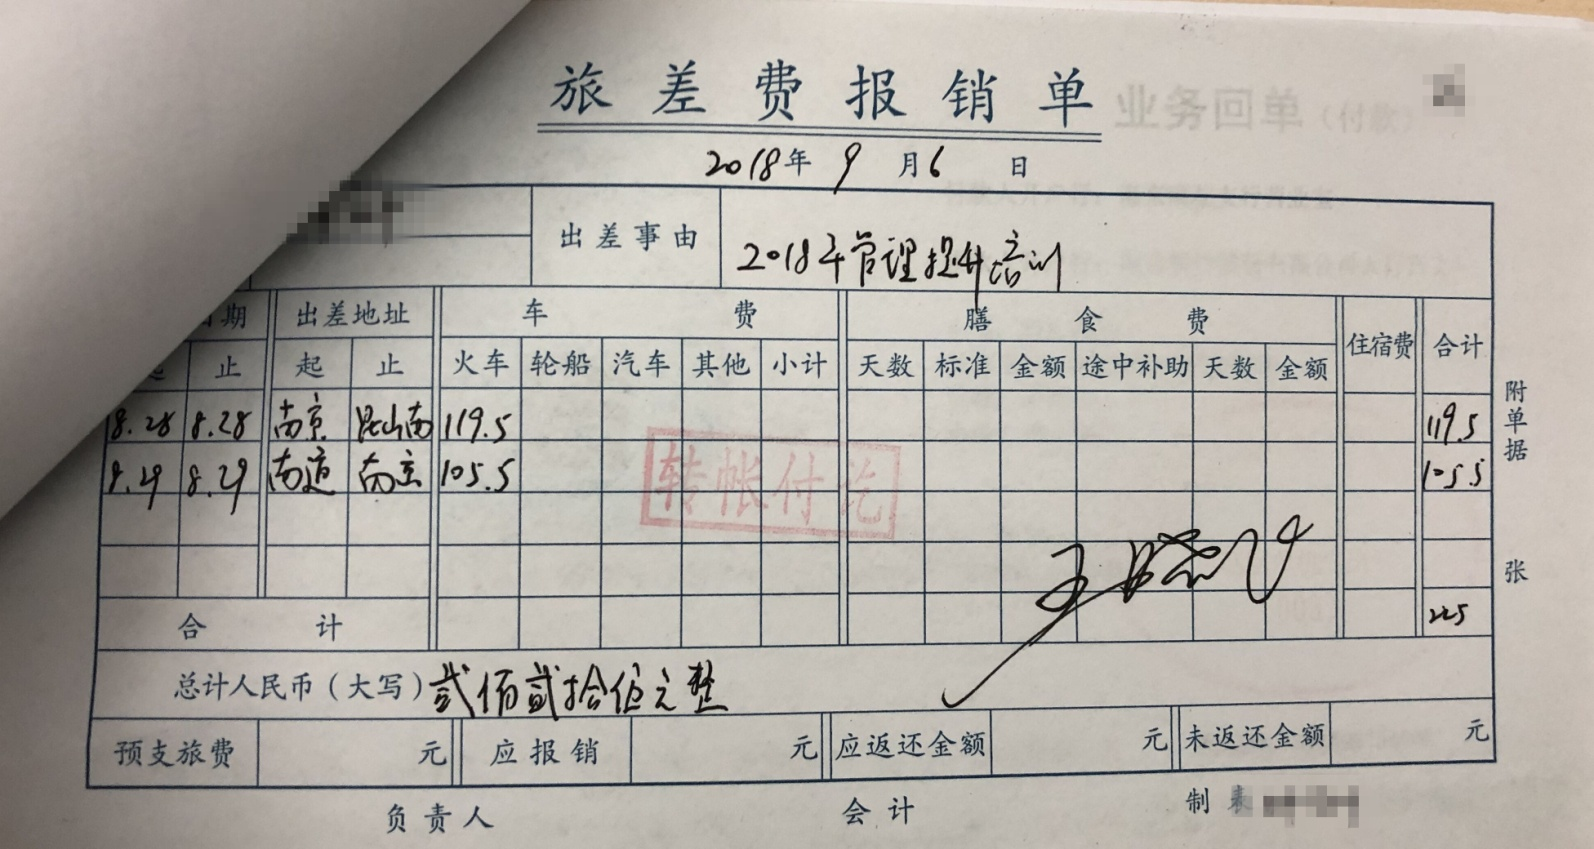 旅差费报销单
业务回单(付款)
2018年 9 月 6 日
出差事由 2018年管理提升培训
日期 出差地址 车 费 膳 食 费 住宿费 合计
止 起 止 火车 轮船 汽车 其他 小计 天数 标准 金额 途中补助 天数 金额
8.28 8.28 南京 昆山南 119.5 119.5
8.29 8.29 南京 105.5 105.5
转帐付讫
附单据 张
合 计 225
总计人民币(大写) 贰佰贰拾伍元整
预支旅费 元 应报销 元 应返还金额 元 未返还金额 元
负责人 会计 制表